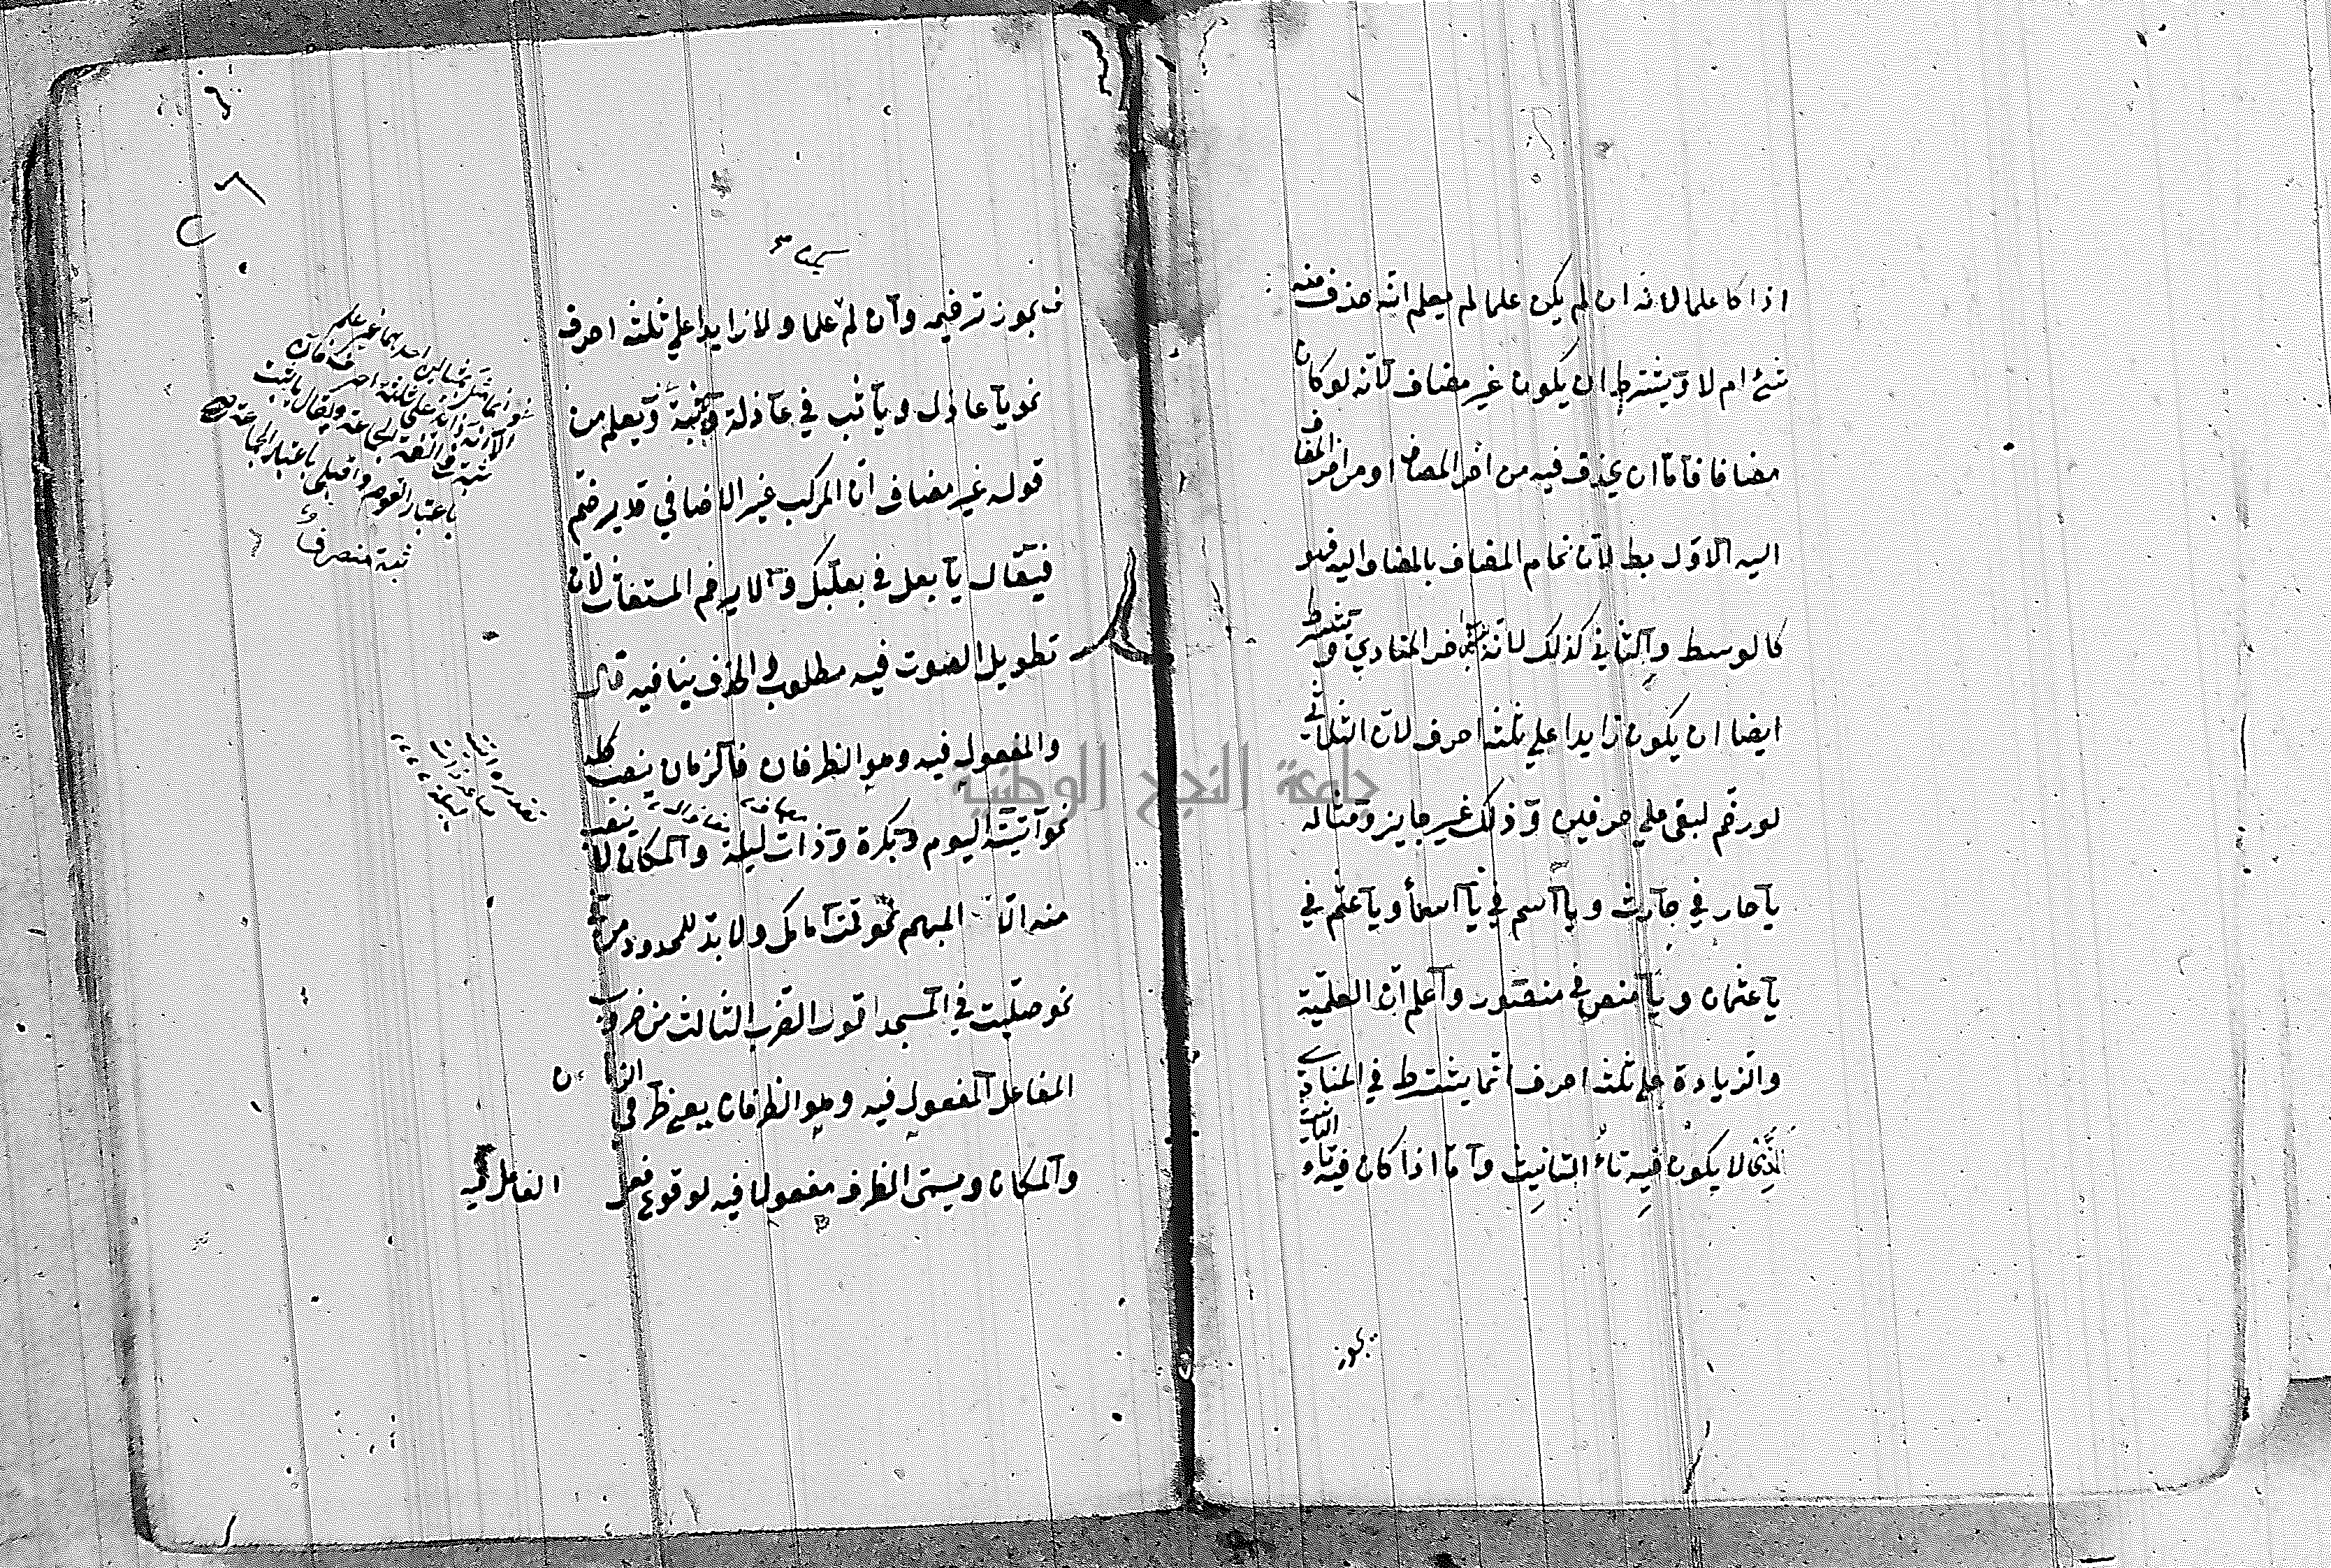 اذا كا علما لانه ان لم يكن علما لم يعلم انّه حذف منه
شئ ام لا ويشترط ان يكون غير مضاف لانّه لو كان
مضافا فامّا ان يحذف فيه من اخر المضاف او من اخر المضا
ف
اليه الاوّل بط لانّ تمام المضاف بالمضاف اليه فهو
كالوسط والثاني كذلك لانّه اخر المنادي ويشترط
ايضا ان يكون زايدا علي ثلثه احرف لانّ الثلاثي
لو رخّم لبقي علي حرفين وذلك غير جايز ومثاله
يا حار في حارث و يا اسم في يا اسمأ و يا عثم في
يا عثمان و يا منص في منصور واعلم انّ العلميّة
والزيادة علي ثلثه احرف انّما يشترط في المنادي
الّذي لا يكون فيه تاءُ التانيث وامّا اذا كان فيه تاء
التانيث
يجوز
يجوز ترخيمه وان لم علما ولا زايدا علي ثلثه احرف
نحو يا عاذل و يا ثب في عاذلة وثبة ويعلم من
قوله غير مضاف انّ المركب غير الاضافي قد يرخّم
فيقال يا بعل في بعلبك ولا يرخم المستغاث لانّ
تطويل الصوت فيه مطلوب والحذف ينافيه قال
والمفعول فيه وهو الظرفان فالزمان ينصب كله
نحو اتيته اليوم وبكرة وذات ليلة والمكان لا ينصب
منه الّا المبهم نحو قمت امامك ولا بدّ للمحدود من في
نحو صلّيت في المسجد اقول الضرب الثالث من ضروب
المفاعيل المفعول فيه وهو الظرفان يعني ظرفي الزمان
والمكان ويسمّى الظرف مفعولا فيه لوقوع فعل الفاعل فيه
باعتبار القوم
ثبة منصرف
جامعة النجاح الوطنية